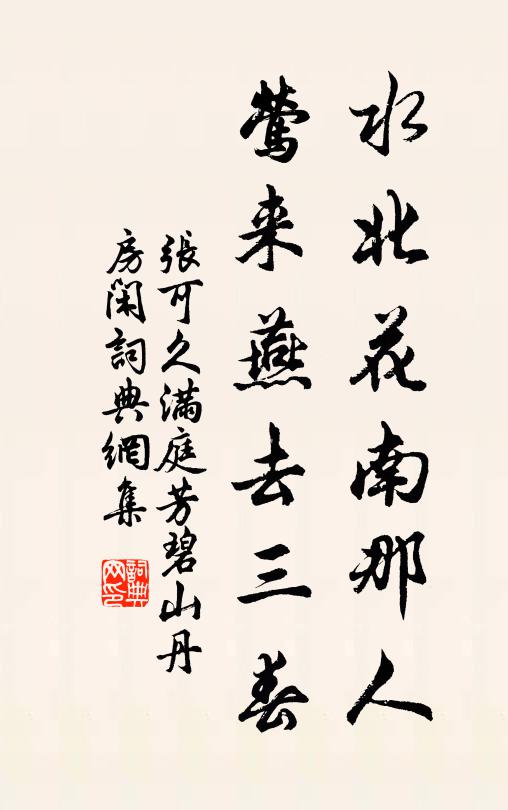 水北花南那人
莺来燕去三春
張可久滿庭芳碧山丹
房閑詞典網集
詞典
网印